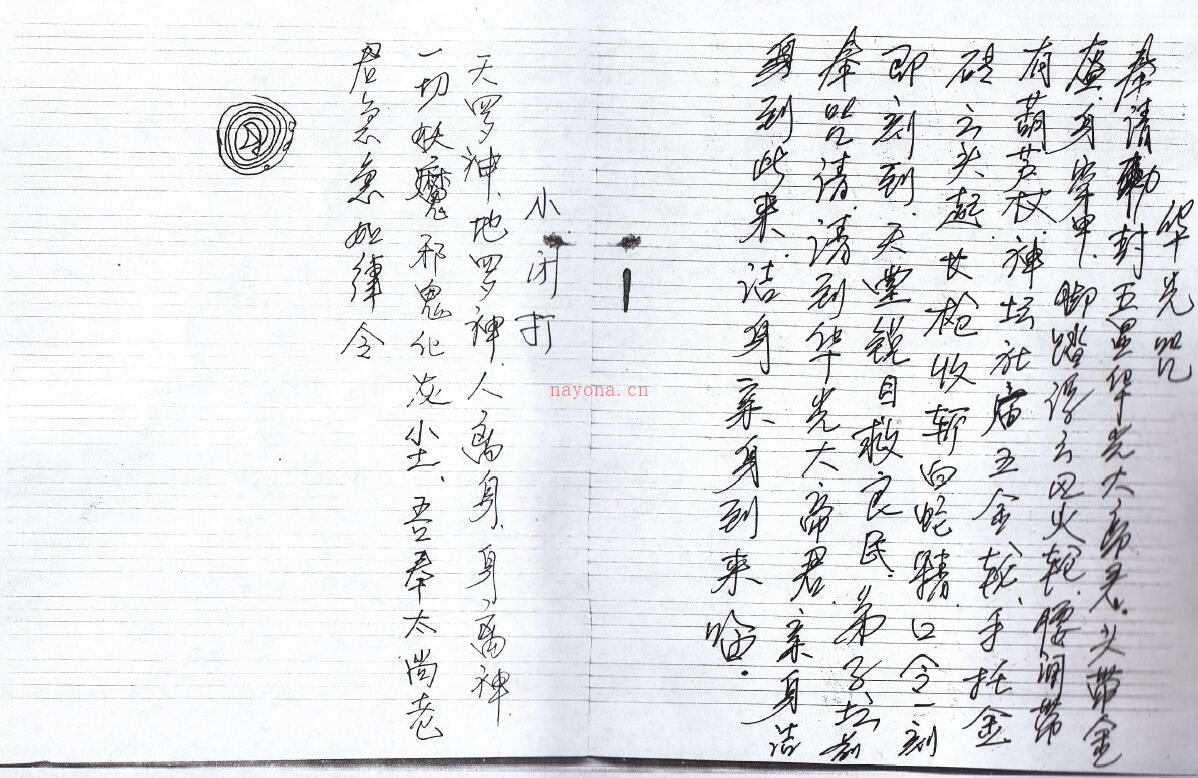 华光咒
奉请勅封五显华光大帝君.头带金
盔.身穿甲.脚踏浮云风火轮.腰间带
有葫芦杖.神坛社庙五金轮、手托金
砖云头起.女枪收斩白蛇精.口令一刻
即刻到.天堂锐目救良民.弟子坛前
奉咒请.请到华光大帝君.亲身洁
身到此来.洁身亲身到来临.
小闭打
天罗神.地罗神.人离身.身离神.
一切妖魔邪鬼化灰小土、吾奉太尚老
君急急如律令
nayona.cn